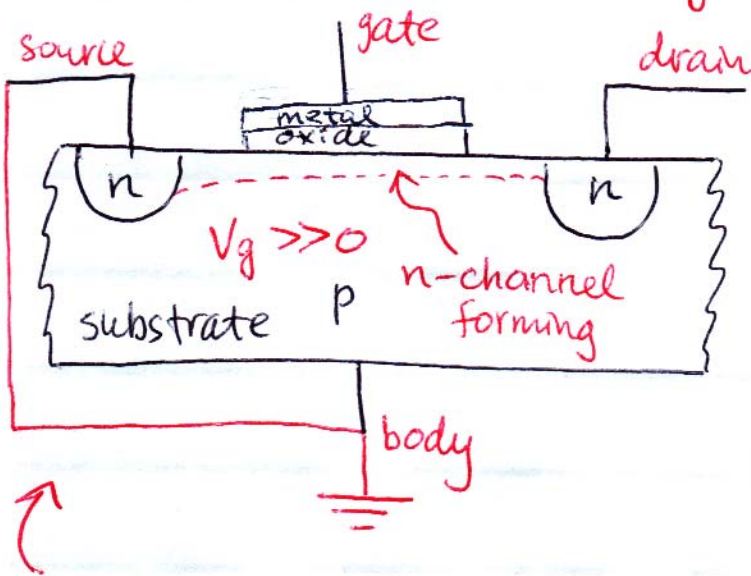 gate
source
drain
metal
oxide
n
n
Vg >>0
n-channel
forming
p
substrate
body